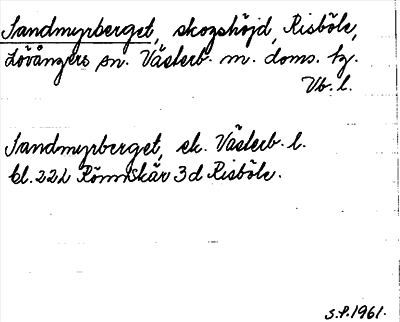 Sandmyrberget, skogshöjd, Risböle,
Lövångers sn. Västerb. m. doms. tg.
Vb. l.
Sandmyrberget, ek. Västerb. l.
bl. 22L Rönnskär 3d Risböle.
S.P. 1961.